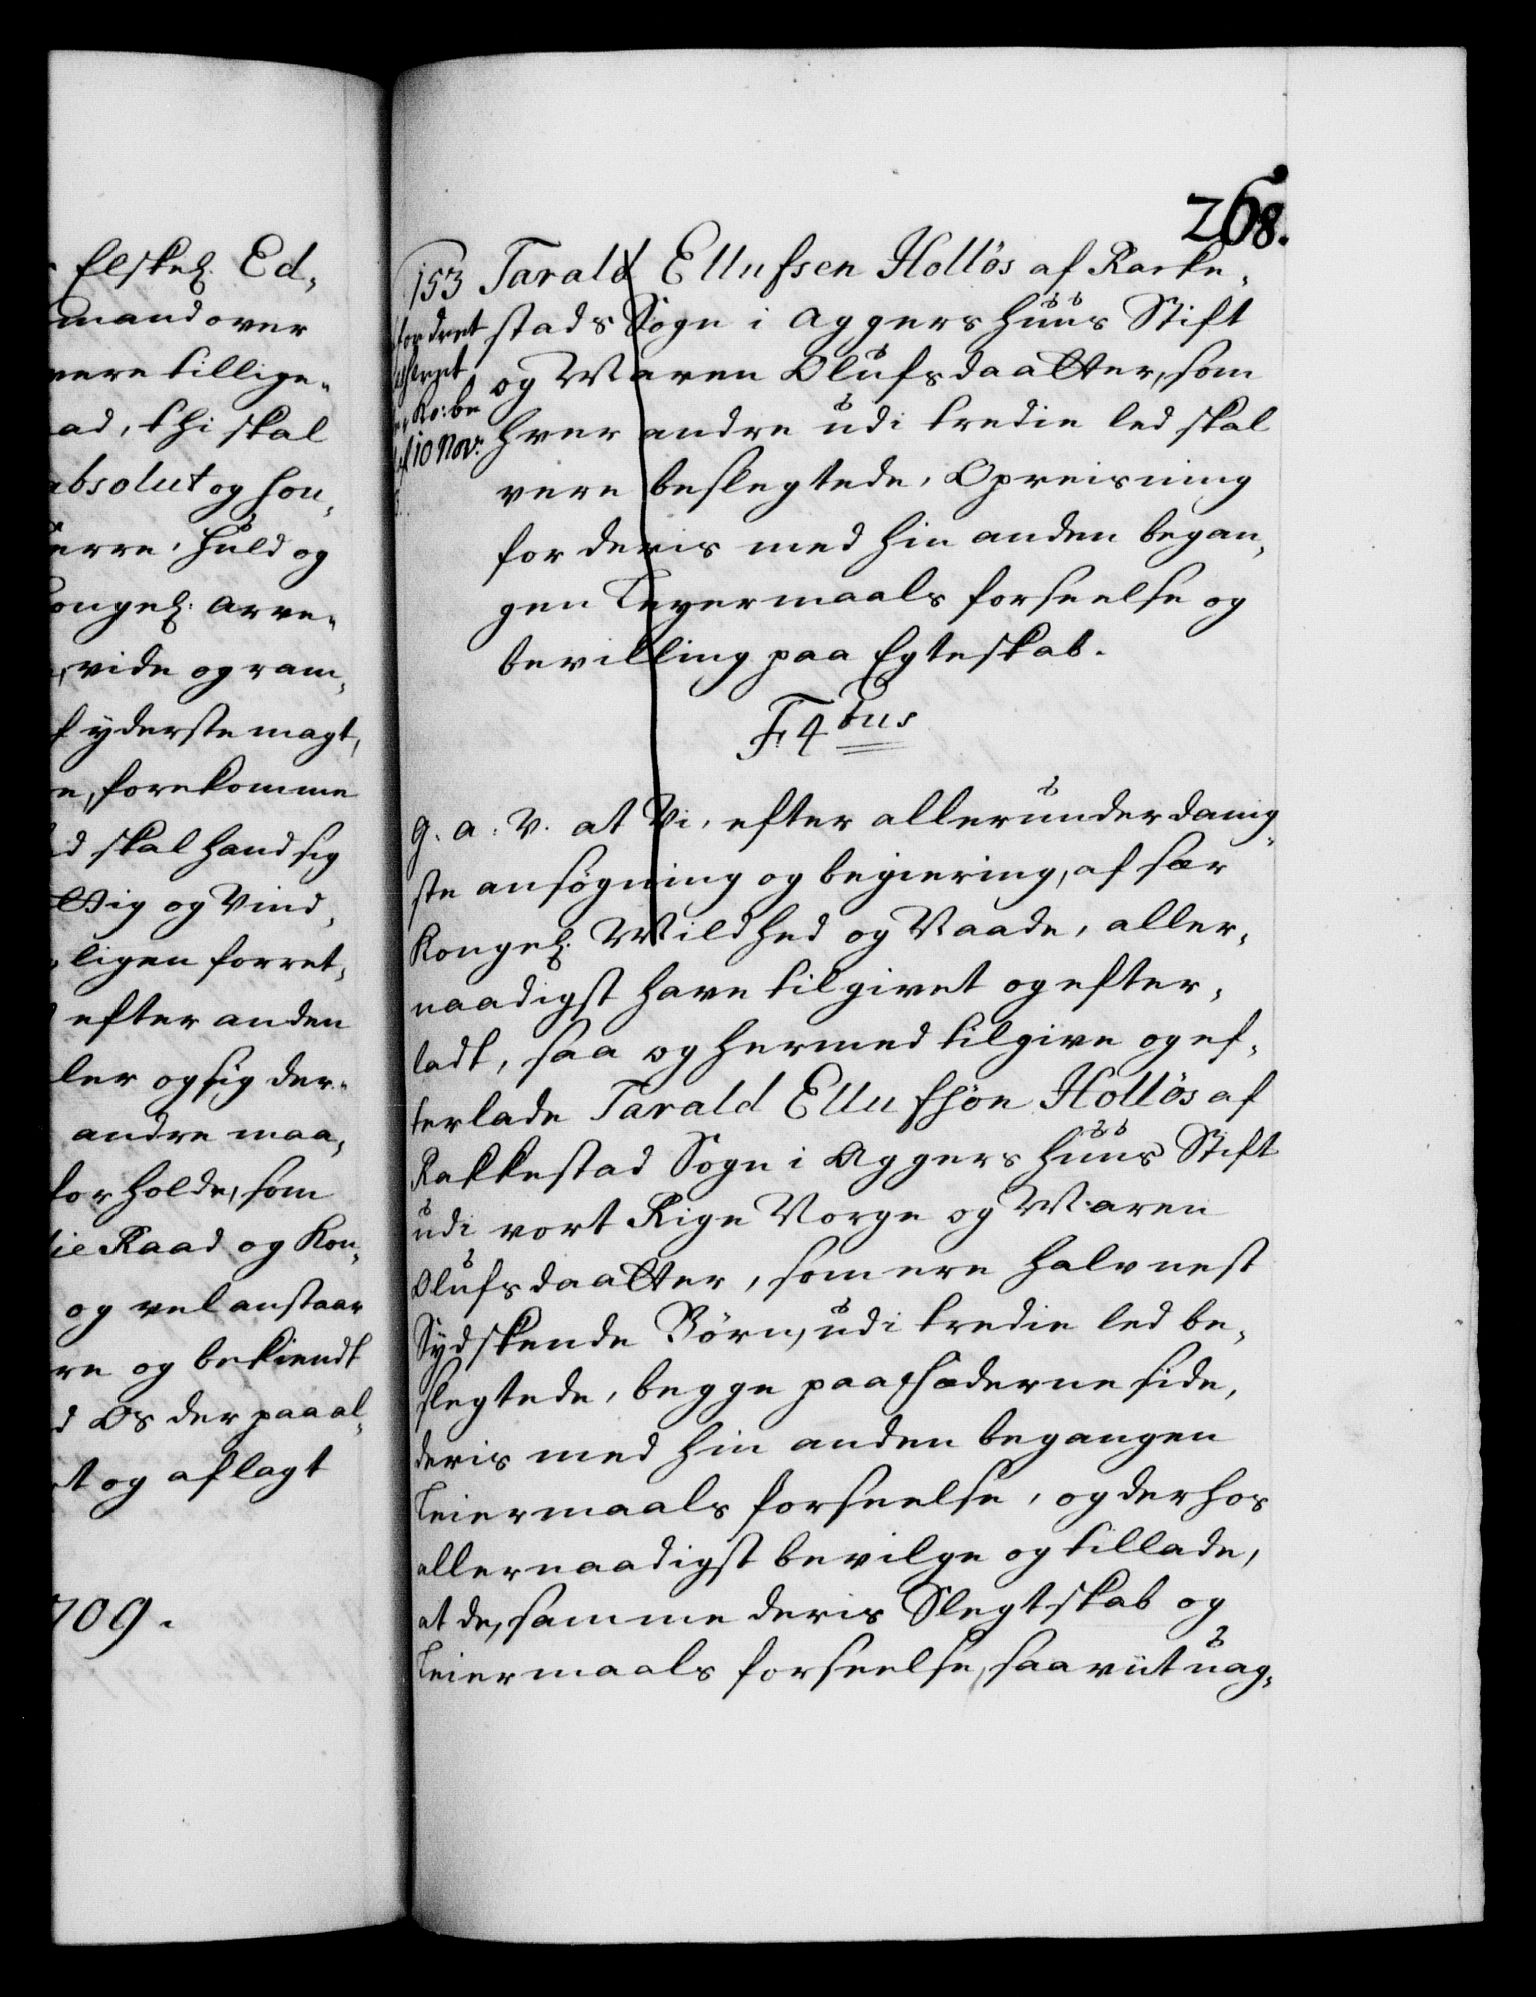 Elskel. Ed-
mand over
være tillige-
ad, thi skal
absolut og sou-
herre, huld og
kongel. Arve-
vide og ram-
yderste magt,
forekomme
skal hand sig
flig og Vind-
ligen forret-
efter anden
ler og sig der-
andre maa-
forholde, som
Raad og Kon-
og vel anstaar
re og bekiendt
Os der paa al-
og aflagt
709.
268.
153 Tarald Ellufsen Holløs af Racke-
stads Sogn i Aggershuus Stift
og Maren Olufsdaatter, som
hver andre udi tredie led skal
vere beslegtede, Opreisning
for deris med hin anden began-
gen Leyermaals forseelse og
bevilling paa Egteskab.
10 Nov:
F 4tus
G. A. V. at Vi, efter allerunderdanig-
ste ansøgning og begiering, af sær
Kongel. Mildhed og Naade, aller-
naadigst have tilgivet og efter-
ladt, saa og hermed tilgive og ef-
terlade Tarald Ellufsøn Holløs af
Rakkestad Sogn i Aggershuus Stift
udi vort Rige Norge og Maren
Olufsdaatter, som ere halv nest
Sydskende Børn, udi tredie led be-
slegtede, begge paa fæderne side,
deris med hin anden begangen
Leiermaals forseelse, og derhos
allernaadigst bevilge og tillade,
at de, samme deris Slegtskab og
Leiermaals forseelse, saavit uag-